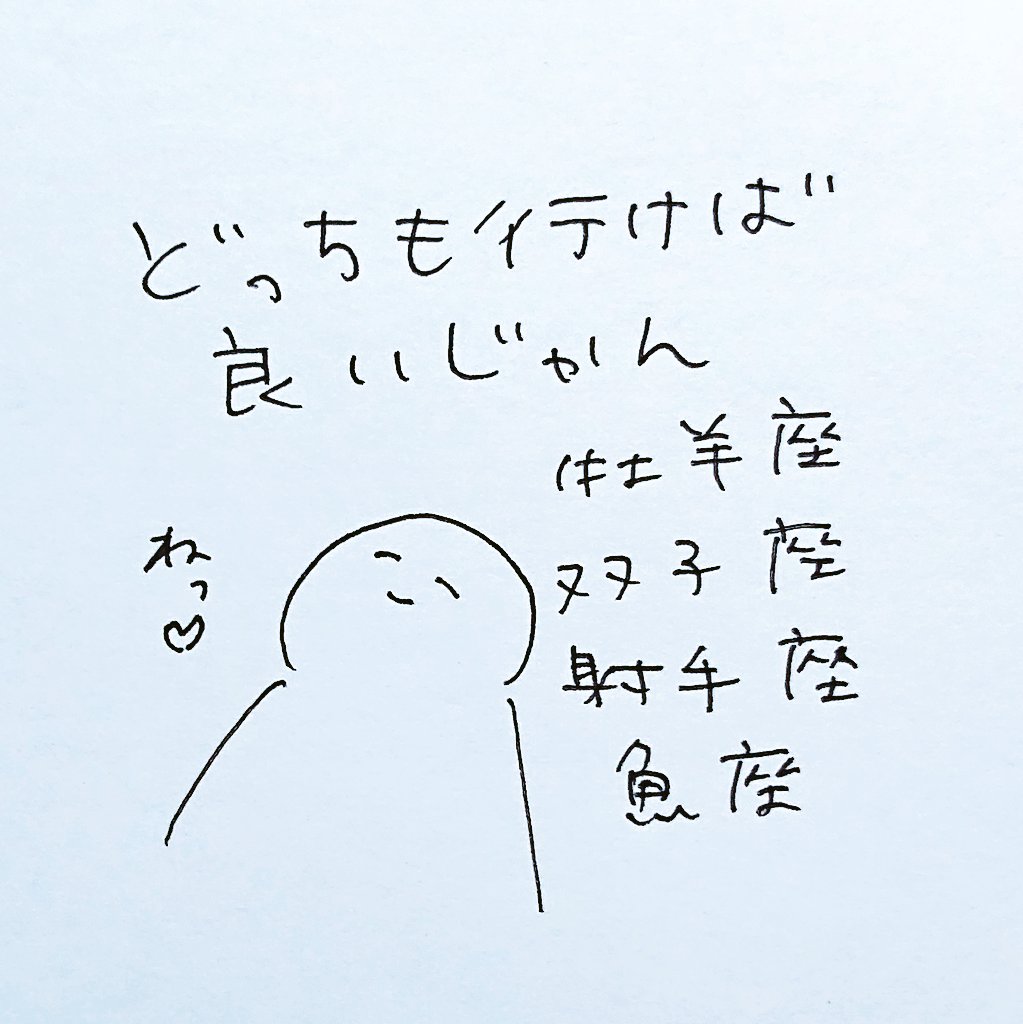 どっちも行けば
良いじゃん
牡羊座
双子座
射手座
魚座
ねっ♡